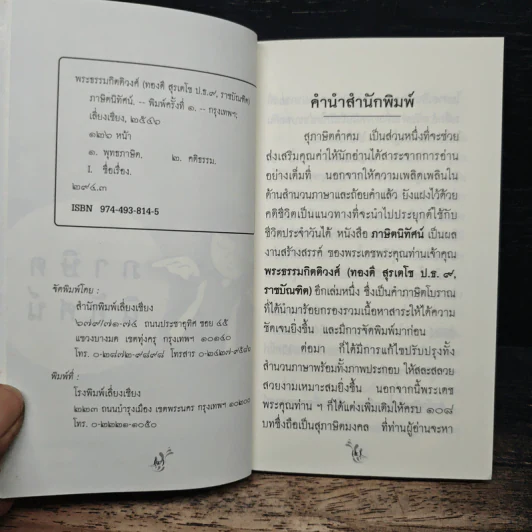 พระธรรมกิตติวงศ์ (ทองดี สุรเตโช ป.ธ.๙, ราชบัณฑิต)
ภาษิตนิทัศน์. – พิมพ์ครั้งที่ ๑. – กรุงเทพฯ:
เลี่ยงเชียง, ๒๕๔๖
๑๒๖ หน้า
๑. พุทธภาษิต. ๒. คติธรรม.
I. ชื่อเรื่อง.
๒๙๔.๓
ISBN 974-493-814-5
จัดพิมพ์โดย :
สำนักพิมพ์เลี่ยงเชียง
๖๗๙/๗๑-๗๔ ถนนประชาอุทิศ ซอย ๔๕
แขวงบางมด เขตทุ่งครุ กรุงเทพฯ ๑๐๑๔๐
โทร. ๐-๒๘๗๒-๙๘๙๘ โทรสาร
พิมพ์ที่ :
โรงพิมพ์เลี่ยงเชียง
๒๒๓ ถนนบำรุงเมือง เขตพระนคร กรุงเทพฯ ๑๐๒๐๐
โทร. ๐-๒๒๒๑-๑๐๕๐
คำนำสำนักพิมพ์
สุภาษิตคำคม เป็นส่วนหนึ่งที่จะช่วย
ส่งเสริมคุณค่าให้นักอ่านได้สาระจากการอ่าน
อย่างเต็มที่ นอกจากให้ความเพลิดเพลินใน
ด้านสำนวนภาษาและถ้อยคำแล้ว ยังแฝงไว้ด้วย
คติชีวิตเป็นแนวทางที่จะนำไปประยุกต์ใช้กับ
ชีวิตประจำวันได้ หนังสือ ภาษิตนิทัศน์ เป็นผล
งานสร้างสรรค์ ของพระเดชพระคุณท่านเจ้าคุณ
พระธรรมกิตติวงศ์ (ทองดี สุรเตโช ป.ธ. ๙,
ราชบัณฑิต) อีกเล่มหนึ่ง ซึ่งเป็นคำภาษิตโบราณ
ที่ได้นำมาร้อยกรองรวมเนื้อหาสาระให้ได้ความ
ชัดเจนยิ่งขึ้น และมีการจัดพิมพ์มาก่อน
ต่อมา ก็ได้มีการแก้ไขปรับปรุงทั้ง
สำนวนภาษาพร้อมทั้งภาพประกอบ ให้สละสลวย
สวยงามเหมาะสมยิ่งขึ้น นอกจากนี้พระเดช
พระคุณท่าน ฯ ก็ได้แต่งเพิ่มเติมให้ครบ ๑๐๘
บทซึ่งถือเป็นสุภาษิตมงคล ที่ท่านผู้อ่านจะหา